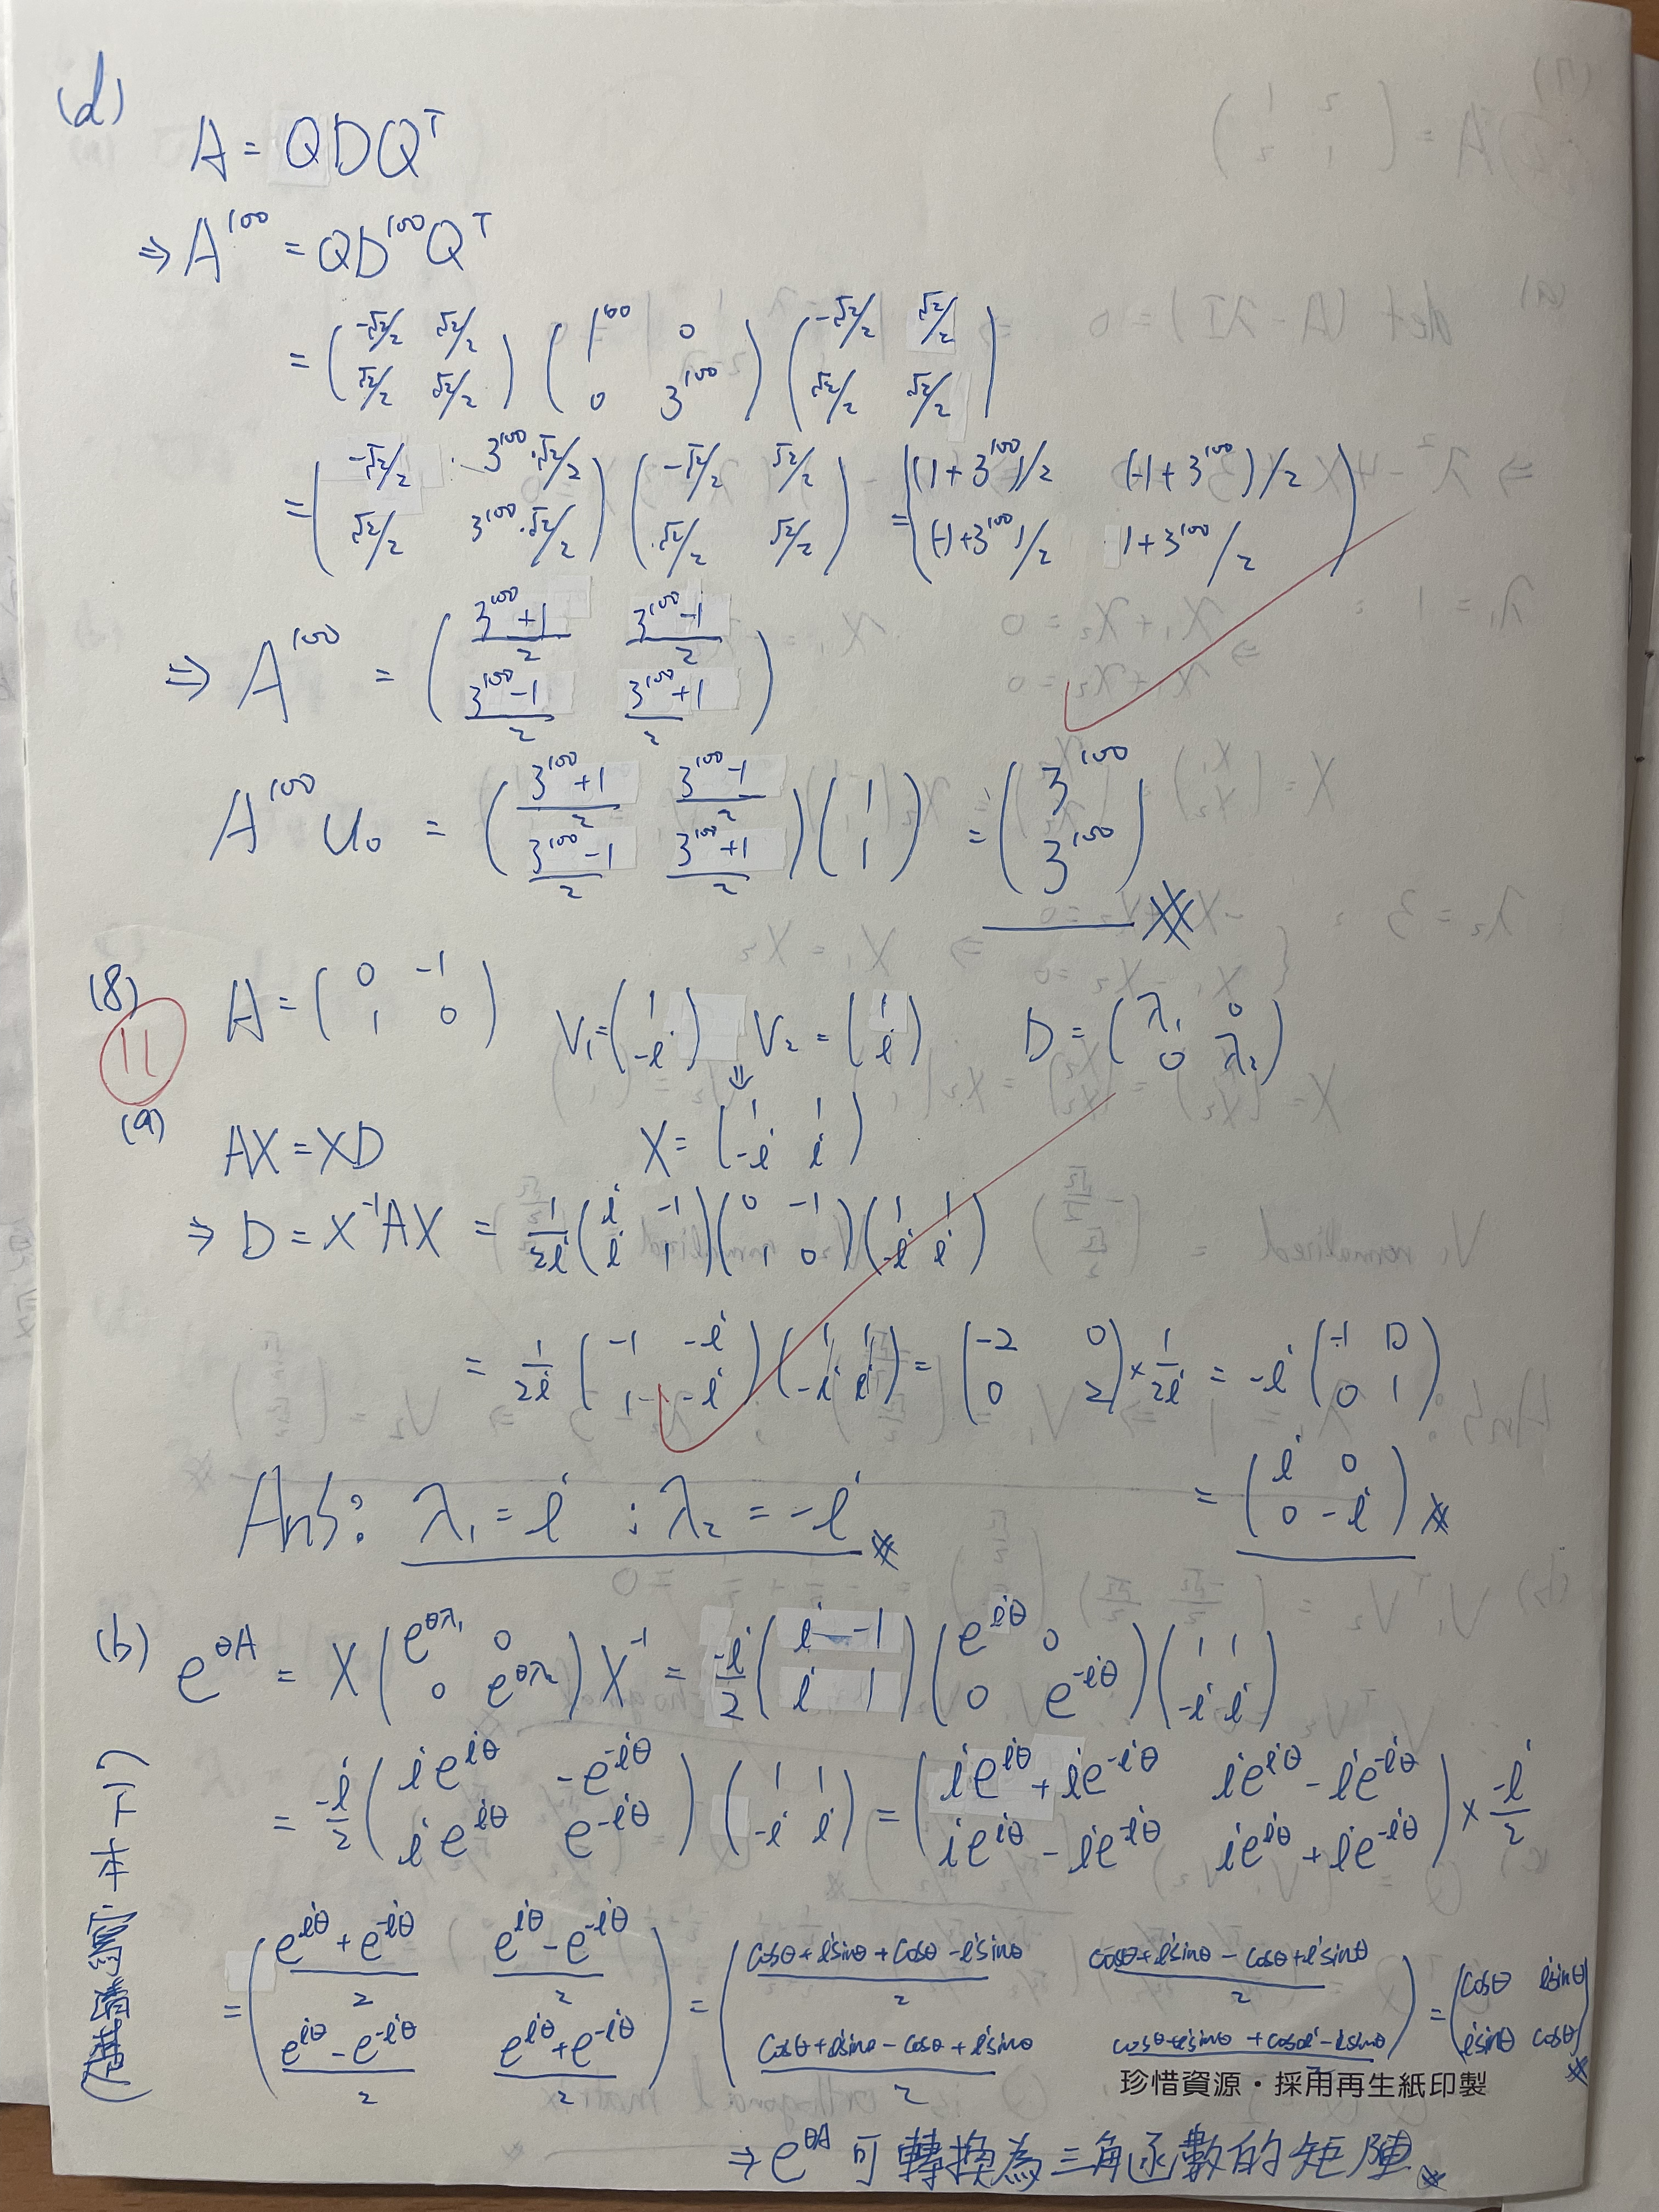 (d)
A = QDQ^T
⇒ A^100 = QD^100 Q^T
= (-√2/2 √2/2 ; √2/2 √2/2) (1^100 0 ; 0 3^100) (-√2/2 √2/2 ; √2/2 √2/2)
= (-√2/2 3^100·√2/2 ; √2/2 3^100·√2/2) (-√2/2 √2/2 ; √2/2 √2/2) = ((1+3^100)/2 (-1+3^100)/2 ; (-1+3^100)/2 1+3^100/2)
⇒ A^100 = ((3^100+1)/2 (3^100-1)/2 ; (3^100-1)/2 (3^100+1)/2)
A^100 u₀ = ((3^100+1)/2 (3^100-1)/2 ; (3^100-1)/2 (3^100+1)/2) (1 ; 1) = (3^100 ; 3^100)
(8) A = (0 -1 ; 1 0) V₁ = (1 ; -i) V₂ = (1 ; i) D = (λ₁ 0 ; 0 λ₂)
11
(a) AX = XD ⇓ X = (1 1 ; -i i)
⇒ D = X^-1 AX = 1/2i (i -1 ; i 1) (0 -1 ; 1 0) (1 1 ; -i i)
= 1/2i (-1 -i ; 1 -i) (1 1 ; -i i) = (-2 0 ; 0 2) × 1/2i = -i (-1 0 ; 0 1)
= (i 0 ; 0 -i)
Ans: λ₁ = i ; λ₂ = -i
(b) e^θA = X (e^θλ₁ 0 ; 0 e^θλ₂) X^-1 = -i/2 (i -1 ; i 1) (e^iθ 0 ; 0 e^-iθ) (1 1 ; -i i)
= -i/2 (ie^iθ -e^-iθ ; ie^iθ e^-iθ) (1 1 ; -i i) = (ie^iθ+ie^-iθ ie^iθ-ie^-iθ ; ie^iθ-ie^-iθ ie^iθ+ie^-iθ) × -i/2
= ((e^iθ+e^-iθ)/2 (e^iθ-e^-iθ)/2 ; (e^iθ-e^-iθ)/2 (e^iθ+e^-iθ)/2) = ((cosθ+isinθ+cosθ-isinθ)/2 (cosθ+isinθ-cosθ+isinθ)/2 ; (cosθ+isinθ-cosθ+isinθ)/2 cosθ+isinθ+cosθ-isinθ) = (cosθ isinθ ; isinθ cosθ)
珍惜資源・採用再生紙印製
⇒ e^θA 可轉換為三角函數的矩陣